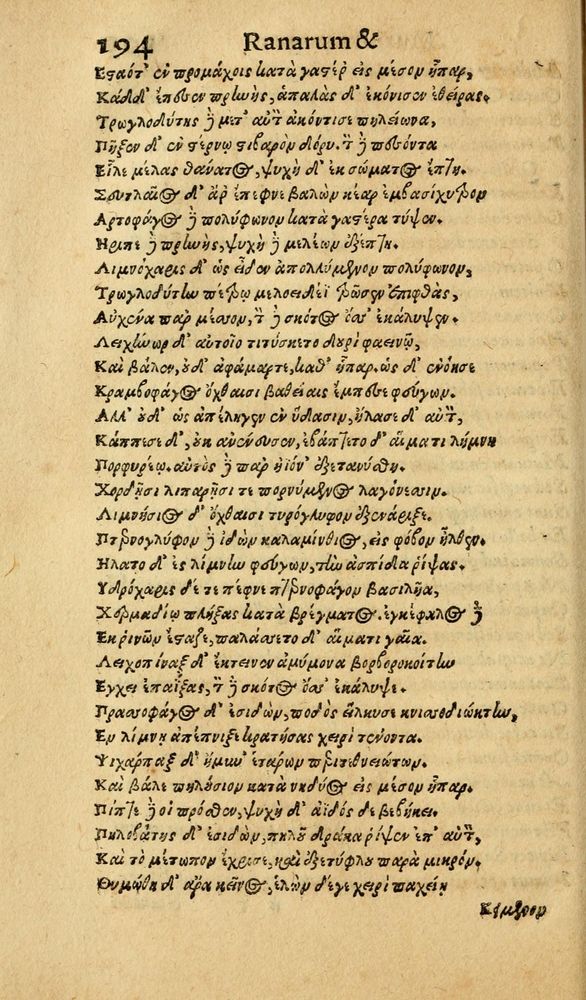 194 Ranarum &
Εσαότ' ἐν προμάχοις κατὰ γαστέρ' εἰς μέσον ἧπαρ,
Κὰδδ' ἔπεσεν πρηνὴς, ἁπαλὰς δ' ἐκόνισεν ἐθείρας.
Τρωγλοδύτης δὲ μετ' αὐτὸν ἀκόντισε πηλείωνα,
Πῆξεν δ' ἐν στέρνῳ στιβαρὸν δόρυ. τὸν δὲ πεσόντα
Εἷλε μέλας θάνατος, ψυχὴ δ' ἐκ σώματος ἔπτη.
Σευτλαῖος δ' ἄρ' ἔπεφνε βαλὼν κέαρ ἐμβασίχυτρον
Αρτοφάγος δὲ πολύφωνον κατὰ γαστέρα τύψεν.
Ηριπε δὲ πρηνὴς, ψυχὴ δὲ μελέων ἐξέπτη.
Λιμνόχαρις δ' ὡς εἶδεν ἀπολλύμενον πολύφωνον,
Τρωγλοδύτην πέτρῳ μυλοειδέϊ τρῶσεν ἐπιφθὰς,
Αὐχένα παρ μέσσον, τὸν δὲ σκότος ὄσσ' ἐκάλυψεν.
Λειχήνωρ δ' αὐτοῖο τιτύσκετο δουρὶ φαεινῷ,
Καὶ βάλεν, οὐδ' ἀφάμαρτε, καθ' ἧπαρ. ὡς δ' ἐνόησε
Κραμβοφάγος ὄχθαισι βαθείαις ἔμπεσε φεύγων.
Αλλ' οὐδ' ὡς ἀπέληγεν ἐν ὕδασιν, ἤλασε δ' αὐτὸν,
Κάππεσε δ', οὐκ ἀνένευσεν, ἐβάπτετο δ' αἵματι λίμνη
Πορφυρέῳ. αὐτὸς δὲ παρ' ἠϊόν' ἐξετανύσθη.
Χορδῇσι λιπαρῇσί τε πορνύμενος λαγόνεσσιν.
Λιμνήσιος δ' ὄχθαισι τυρόγλυφον ἐξενάριξε.
Πτερνογλύφον δὲ ἰδὼν καλαμίνθιος, εἰς φόβον ἦλθεν.
Ηλατο δ' ἐς λίμνην φεύγων, τὴν ἀσπίδα ῥίψας.
Υδρόχαρις δέ τ' ἔπεφνε πτερνοφάγον βασιλῆα,
Χερμαδίῳ πλήξας κατὰ βρέγματος. ἐγκέφαλος δὲ
Εκ ῥινῶν ἔσταξε, παλάσσετο δ' αἵματι γαῖα.
Λειχοπίναξ δ' ἔκτεινεν ἀμύμονα βορβοροκοίτην
Εγχει ἐπαΐξας, τὸν δὲ σκότος ὄσσ' ἐκάλυψε.
Πρασσοφάγος δ' ἐσιδὼν, ποδὸς εἵλκυσε κνισσοδιώκτην,
Εν λίμνῃ ἀπέπνιξε κρατήσας χειρὶ τένοντα.
Ψιχάρπαξ δ' ἤμυν' ἑτάρων περὶ τεθνειώτων.
Καὶ βάλε πηλήσιον κατὰ νηδύος εἰς μέσον ἧπαρ.
Πίπτε δέ οἱ πρόσθεν, ψυχὴ δ' ἀϊδός δε βεβήκει.
Πηλοβάτης δ' ἐσιδὼν, πηλοῦ δράκα ῥίψεν ἐπ' αὐτὸν,
Καὶ τὸ μέτωπον ἔχρισε, καὶ ἐξετύφλου παρὰ μικρόν.
Θυμώθη δ' ἄρα κεῖνος, ἑλὼν δέ γε χειρὶ παχείῃ
Κείμενον